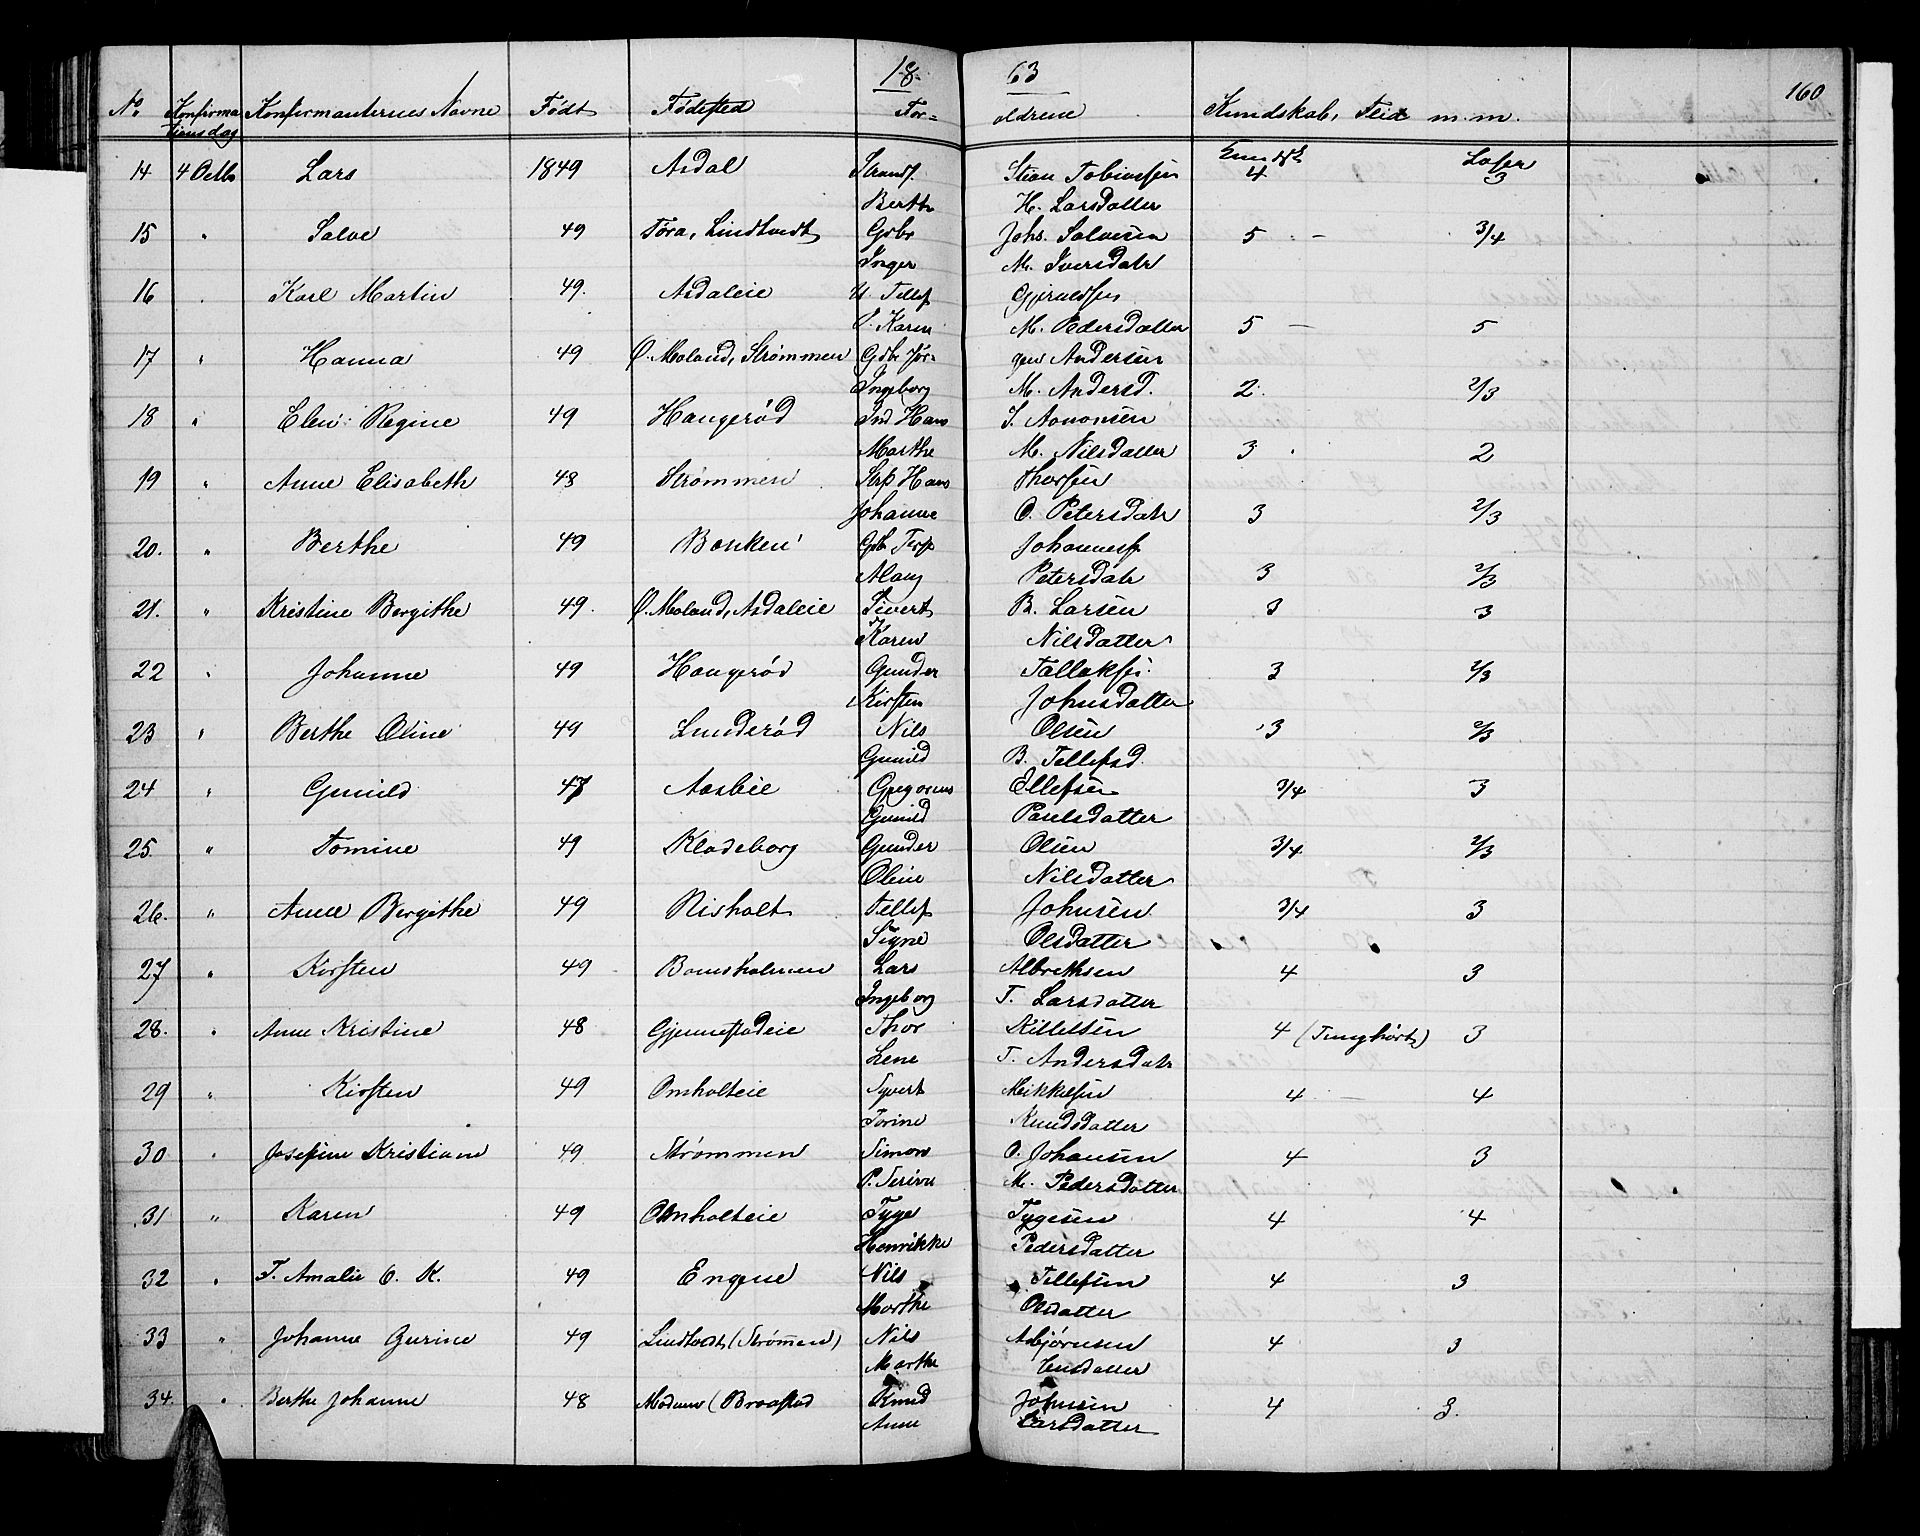 18 63
160
No. Konfirmationsdag Konfirmanternes Navne Født Fødested For= ældrene Kundskab, Flid m.m.
14 4 Octb Lars 1849 Asdal Stian Tobiassen Kundsk 4 Læser 3
Berthe H. Larsdatter
15 " Salve 49 Føra, Lindtvedt Gdbr Johs. Salvesen 5 - 3/4
Inger M. Iversdatr
16 " Karl Martin 49. Asdaleie Tellef Gjeruldsen
Karen M. Pedersdatter 5 - 5
17 " Hanna 49 Ø. Moland, Strømmen Gdbr Jør- gen Andersen
Ingeborg M. Andersd. 2. 2/3
18 " Elen Regine 49 Haugerød Ind Hans J. Aanonsen
Marthe M. Nilsdatter 3 . 2
19 " Anne Elisabeth 48 Strømmen Strp Hans Thorsen
Johanne O. Petersdatr 3 2/3
20. " Berthe 49 Bonken Gdbr Terje Johanness.
Alaug Petersdatr 3 2/3
21. " Kristine Bergithe 49. Ø. Moland, Asdaleie Sivert B. Larsen 3 3
Karen Nilsdatter
22 " Johanne 49 Haugerød Gunder Tallaksen 3 2/3
Kirsten Johnsdatter
23 " Berthe Oline 49 Lunderød Nils Olsen 3 2/3
Gunild B. Tellefsd.
24 " Gunild 47 Aasbie Gregorius Ellefsen 3/4 3
Gunild Paulsdatter
25. " Tomine 49 Klodeborg Gunder Olsen 3/4. 2/3
Oline Nilsdatter
26. " Anne Bergithe 49 Risholt Tellef Johnsen 3/4 3
Signe Olsdatter
27 " Kirsten 49 Bomsholmen Lars Albrethsen 4 3
Ingeborg T. Larsdatter
28. " Anne Kristine 48 Gjennestadeie Thor Killelsen 4 (Tunghørt) 3
Lene T. Andersdatr
29 " Kirsten 49 Omholteie Syvert Mikkelsen 4 - 4
Torine Knudsdatter
30 " Josefine Kristiane 49 Strømmen Simon O. Johansen 4 3
M. Pedersdatter
31 " Karen 49 Omholteie Tyge Tygesen 4 4
Henrikke Pedersdatter
32 " T. Amalie O. K. 49 Engene Nils Tellefsen 4 3
Marthe Olsdatter
33 " Johanne Gurine 49 Lindtvedt (Strømmen) Nils Asbjørnsen 4 3
Marthe Jensdatter
34. " Berthe Johanne 48 (Braastad Knud Johnsen 4 3.
Anne Larsdatter